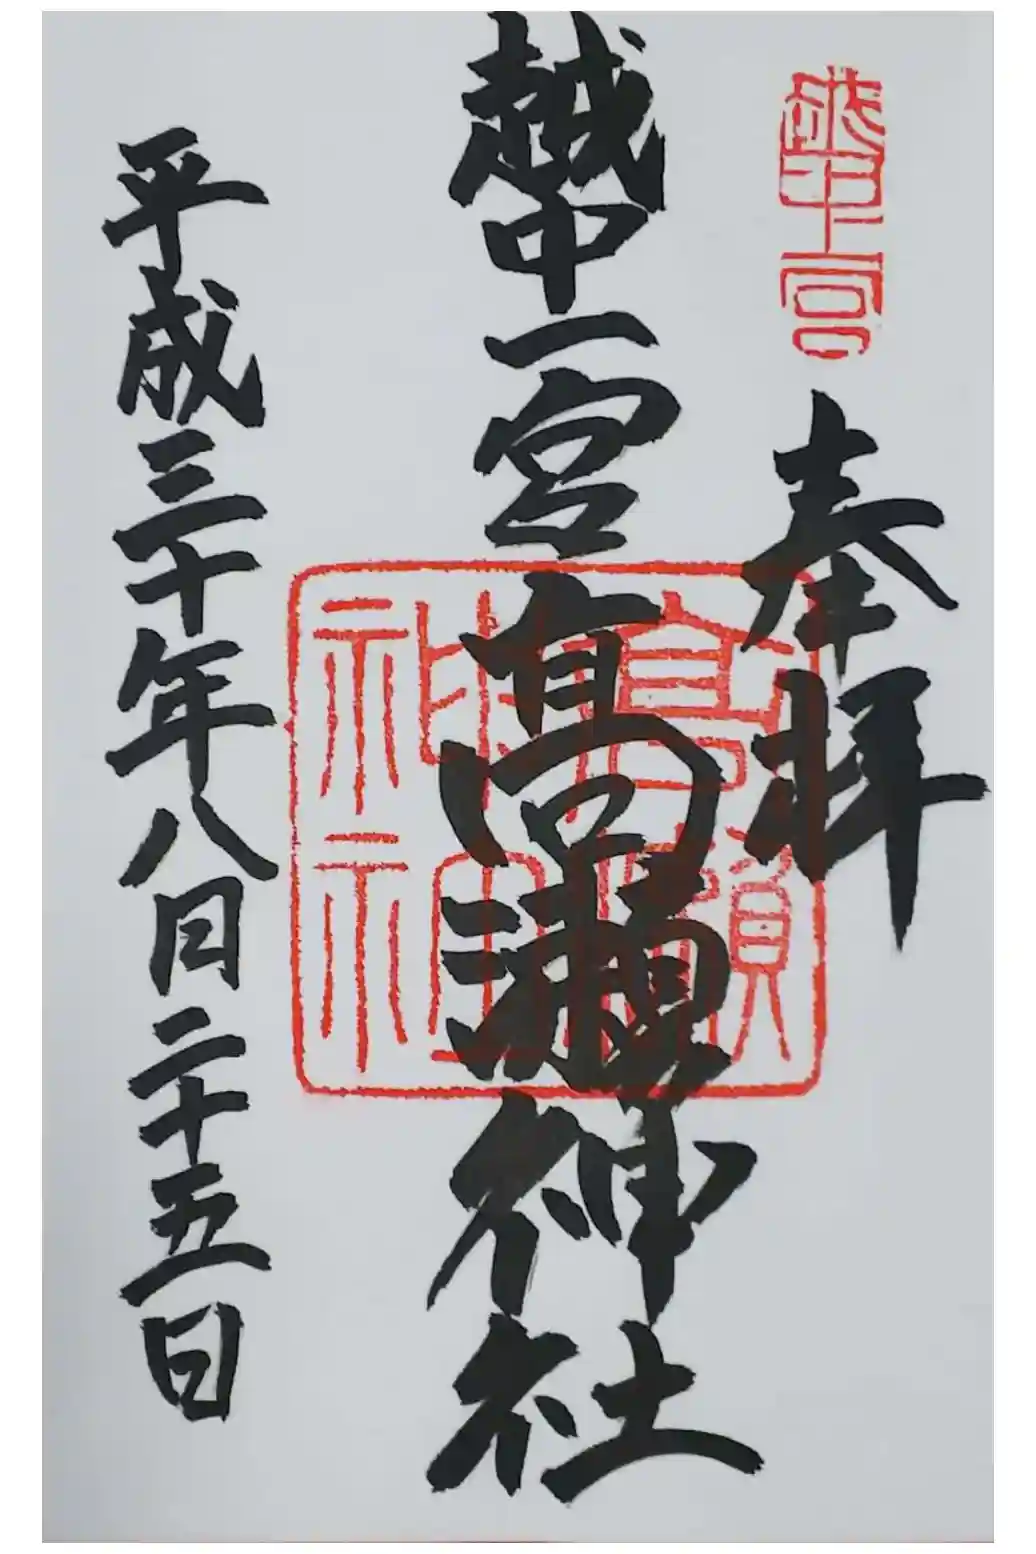 奉拝
越中一宮高瀬神社
平成三十年八月二十五日
越中一宮
高瀬神社